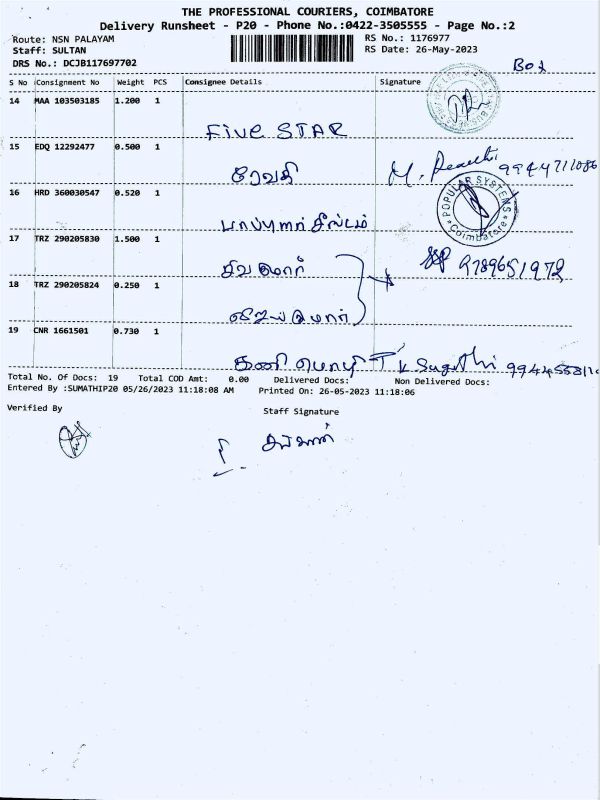 THE PROFESSIONAL COURIERS, COIMBATORE
Delivery Runsheet - P20 - Phone No.:0422-3505555 - Page No.:2
Route: NSN PALAYAM
RS No.: 1176977
Staff: SULTAN
RS Date: 26-May-2023
DRS No.: DCJB117697702
Box
S No Consignment No Weight PCS Consignee Details Signature
14 MAA 103503185 1.200 1
Five STAR
15 EDQ 12292477 0.500 1
ரேவதி M. Revathi
16 HRD 360030547 0.520 1
POPULAR SYSTEMS
Coimbatore
17 TRZ 290205830 1.500 1
சிவகுமார் 9789651972
18 TRZ 290205824 0.250 1
விஜயகுமார்
19 CNR 1661501 0.730 1
கனிமொழி
Total No. Of Docs: 19 Total COD Amt: 0.00 Delivered Docs: Non Delivered Docs:
Entered By :SUMATHIP20 05/26/2023 11:18:08 AM Printed On: 26-05-2023 11:18:06
Verified By
Staff Signature